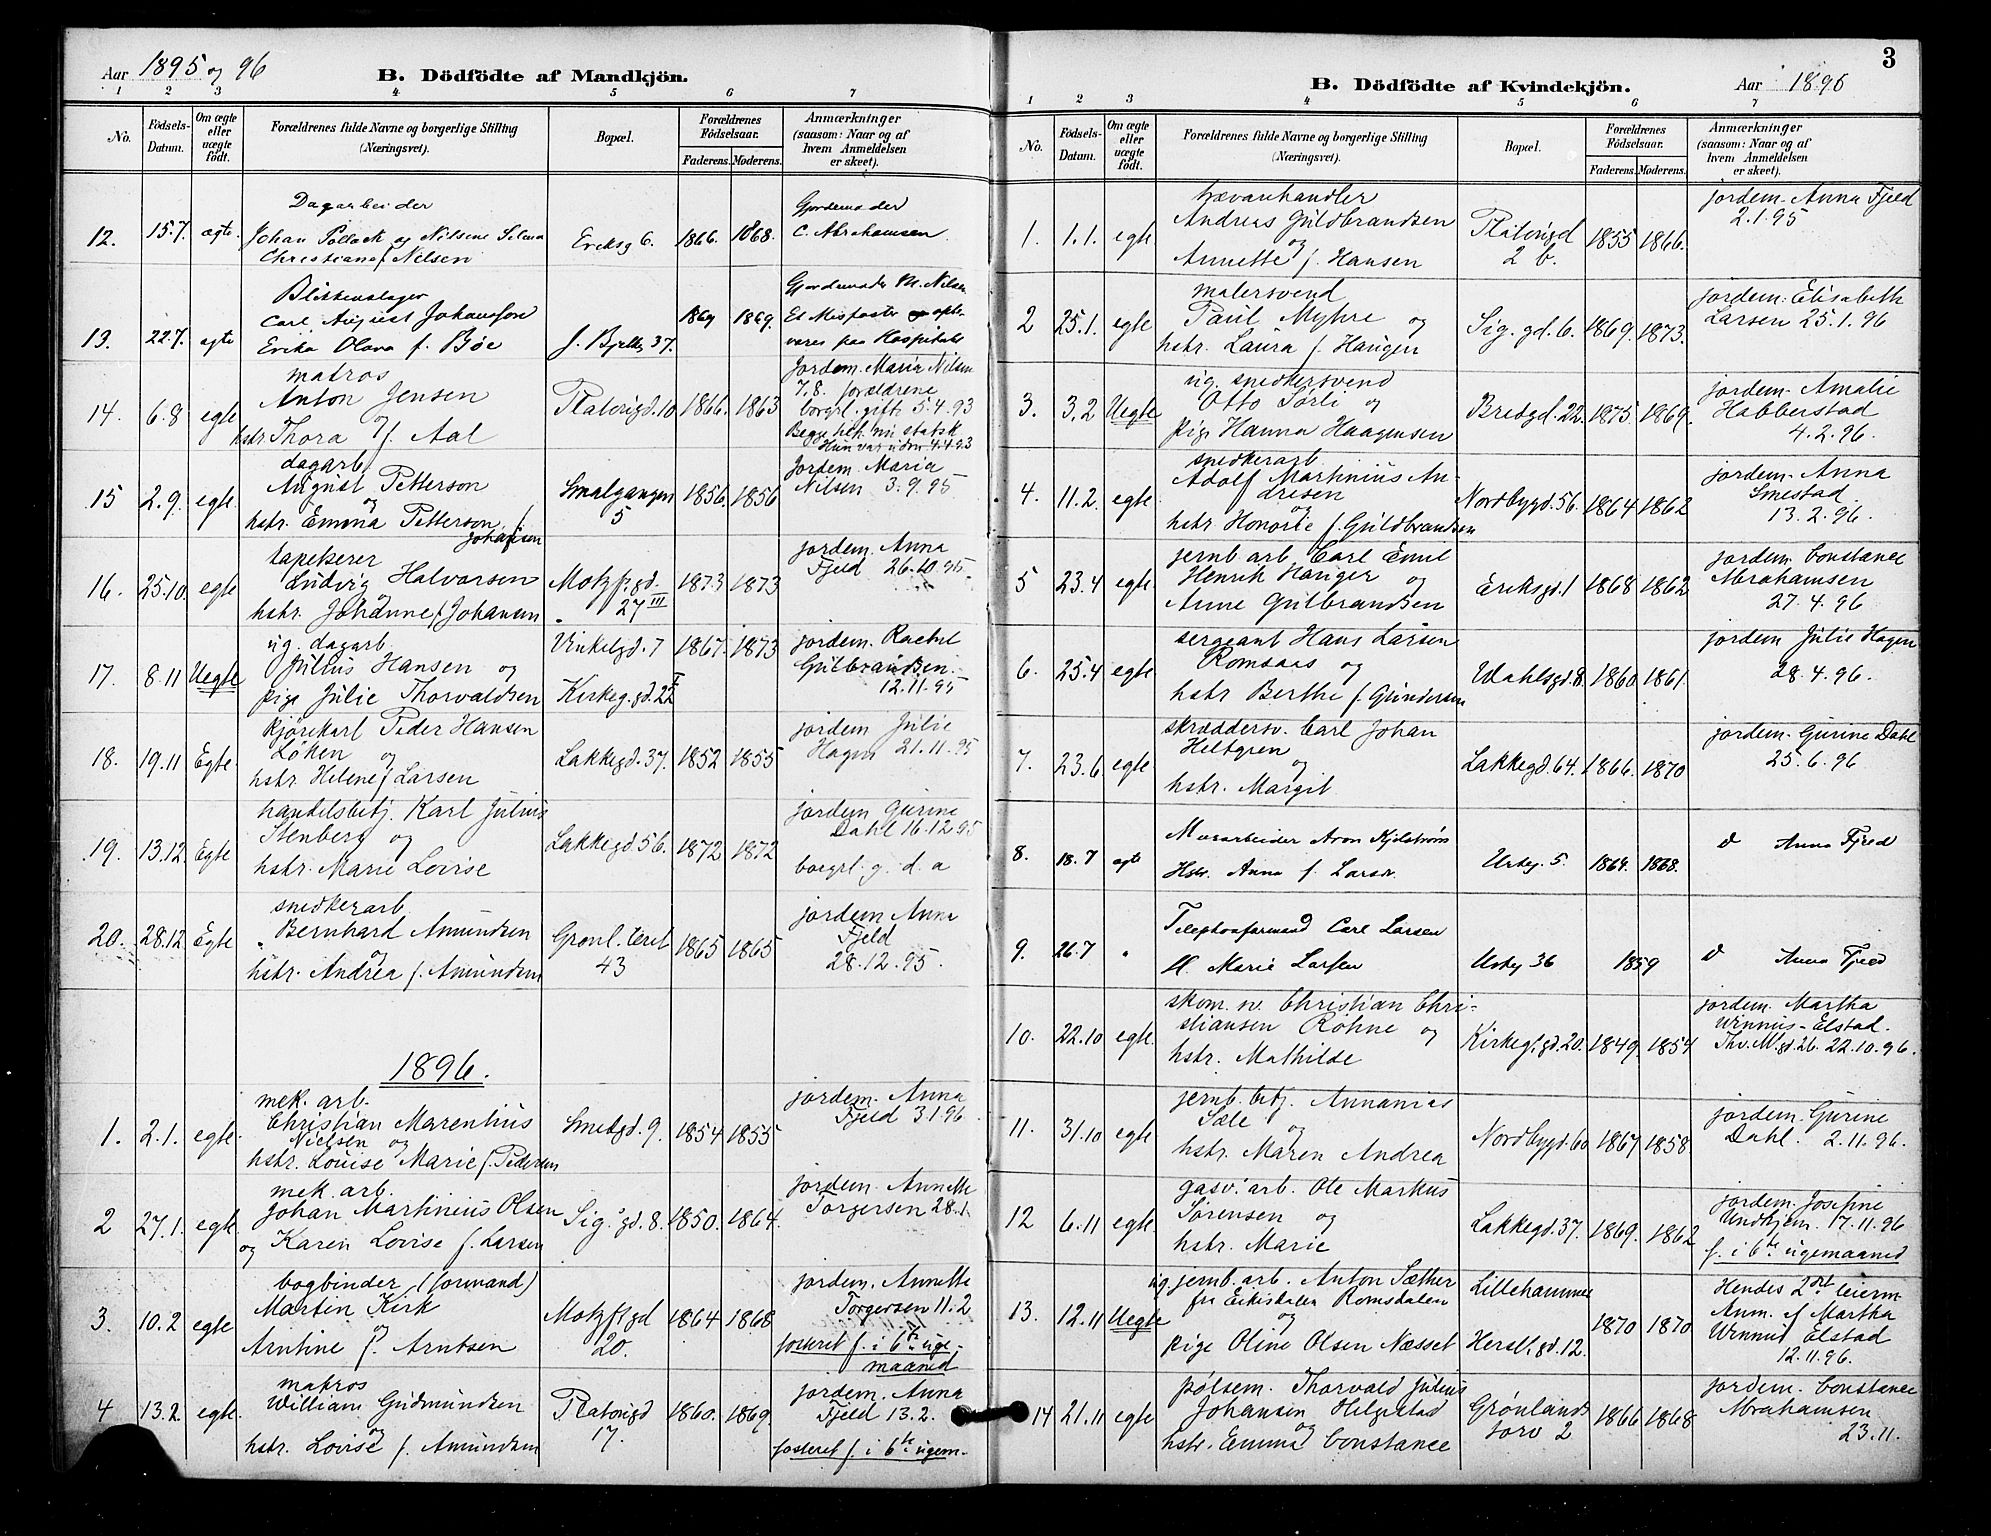 Aar 1895 og 96
B. Dödfödte af Mandkjön.
1 2 3 4 5 6 7
No.
Födsels-Datum.
Om ægte eller uægte födt.
Forældrenes fulde Navne og borgerlige Stilling
(Næringsvei).
Bopæl.
Forældrenes Födselsaar.
Faderens. Moderens.
Anmærkninger
(saasom: Naar og af
hvem Anmeldelsen
er skeet).
Dagarbeider
12. 15.7. ægte. Johan Pollack og Nilsine
Christiane f Nilsen
Eriksg 6. 1866. 1868.
Gjordemoder
C. Abrahamsen.
Blikkenslager
13. 22.7. ægte Carl August Johansson
Erika Olava f. Bøe
1869. 37.
Gjordemoder M. Nilsen
paa Hospitalet
matros
14. 6.8 egte Anton Jensen
hstr Thora f. Aal
Platousgd.10 1866. 1863
Jordem. Maria Nilsen
7.8. forældrene
borgrl. gift 5.4.93
dagarb.
15 2.9. egte. August Petterson
og
hstr. Emma Petterson f. Johansen
Smalgangen 5 1856. 1856
Jordem. Maria
Nilsen 3.9.95
tapetserer
16. 25.10. egte Ludvig Halvorsen
og
hstr. Johanne f Johansen
Motzf.gd. 27 III 1873 1873
jordem. Anna
Fjeld 26.10.95.
ug. dagarb.
17. 8.11 Uegte Julius Hansen og
pige Julie Thorvaldsen
Vinkelgd.7 1867. 1873
Kirkeg.gd.22 I
jordem. Rachel
Gulbrandsen.
12.11.95
kjørekarl Peder Hansen
18. 19.11 Egte. Løken og
hstr. Helene f Larsen
Lakkegd.37. 1852 1855
jordem Julie
Hagen 21.11.95
handelsbetj. Karl Julius
19. 13.12 Egte Stenberg og
hstr. Marie Lovise
Lakkegd.56. 1872 1872
jordem Gurine
Dahl 16.12.95
borgrl. g. d. a
snedkerarb.
20. 28.12 Egte Bernhard Amundsen
og
hstr. Andrea f. Amundsen
Grønl. torvet 43 1865 1865
jordem Anna
Fjeld
28.12.95.
1896.
mek. arb.
1. 2.1. egte. Christian Marenthius
Nielsen og
hstr. Louise Marie f. Pedersen
Smedgd.9. 1854 1855
jordem. Anna
Fjeld 3.1.96
mek. arb.
2 27.1. egte. Johan Martinius Olsen
og Karen Lovise f. Larsen
Sig. gd.8. 1850. 1864.
jordem. Annette
Torgersen 28.1.
bogbinder (formand)
3. 10.2 egte Martin Kirk
og
Arntine f. Arntsen
Motzf.gd 20. 1864 1868
jordem. Annette
Torgersen 11.2
fosteret f. i 6te uge-
maaned
matros
4 13.2. egte. William Gudmundsen
og
hstr. Lovise f. Amundsen
Platousgd 17. 1860. 1869.
jordem. Anna
Fjeld 13.2.
fosteret f. i 6te ugem.
3
B. Dödfödte af Kvindekjön.
Aar 1896
1 2 3 4 5 6 7
No.
Födsels-Datum.
Om ægte eller uægte födt.
Forældrenes fulde Navne og borgerlige Stilling
(Næringsvei).
Bopæl.
Forældrenes Födselsaar.
Faderens. Moderens.
Anmærkninger
(saasom: Naar og af
hvem Anmeldelsen
er skeet).
trævarehandler
1. 1.1. egte Andreas Guldbrandsen
og
Annette f. Hansen
Platousgd 2 b. 1855 1866.
jordem. Anna Fjeld
2.1.95
malersvend
2 25.1. egte Paul Myhre og
hstr. Laura f. Haugen
Sig. gd.6. 1869. 1873.
jordem. Elisabeth
Larsen 25.1.96
ug. snedkersvend
3. 3.2 Uegte Otto Sørli og
pige Hanna Haagensen
Bredgd.22. 1875. 1869.
jordem. Amalie
Habberstad
4.2.96.
snedkerarb
4. 11.2. egte. Adolf Martinius An-
dresen
og
hstr Honorie f. Guldbrandsen
Nordbygd.56. 1864 1862
jordem. Anna
Smestad.
13.2.96.
jernb. arb. Carl Emil
5 23.4 egte. Henrik Hauger og
Anne Gulbrandsen
Eriksgd.1 1868 1862
jordem. Constance
Abrahamsen
27.4.96
sergeant Hans Larsen
6. 25.4 egte. Romsaas og
hstr Berthe f. Gundersen
Udahlsgd.8. 1860. 1861.
jordem Julie Hagen
28.4.96.
skræddersv. Carl Johan
7. 23.6 egte Heltgren
og
hstr. Margit
Lakkegd.64. 1866. 1870
jordem. Gurine Dahl
25.6.96
8. 18.7 ægte Murarbeider Aron
Hstr. Anna f. Larsen
Urteg. 5. 1864. 1868.
d Anna Fjeld
9. 26.7 " Telephonformand Carl Larsen
H. Marie Larsen
Urteg 36 1859
d Anna Fjeld
skom. sv. Christian Chri-
10. 22.10 egte. stiansen Røhne og
hstr. Mathilde
Kirkeg.gd.20. 1849. 1854
jordem. Martha
Winnius-Elstad.
Thv.M.gd.26. 22.10.96.
jernb. btj. Annanias
11. 31.10 egte Sæle og
hstr. Maren Andrea
Nordbygd.60 1867 1858
jordem. Gurine
Dahl. 2.11.96.
gasv. arb. Ole Markus
12 6.11 egte. Sørensen og
hstr. Marie
Lakkegd.37. 1869. 1862
jordem. Josefine
Undhjem. 17.11.96
f. i 6te ugemaaned
ug. jernb. arb. Anton Sæther
13. 12.11 Uegte fra Eikisdalen Romsdalen
og
pige Oline Olsen Næsset
Lillehammer
Hersl.gd.12. 1870 1870
Hendes 2det leierm
Anm. af Martha
Winnius Elstad
12.11.96.
pølsem. Thorvald Julius
14 21.11 egte Johansen Helgestad
og
hstr. Emma Constance
Grønlands torv 2 1866 1868
jordem. Constance
Abrahamsen
23.11.